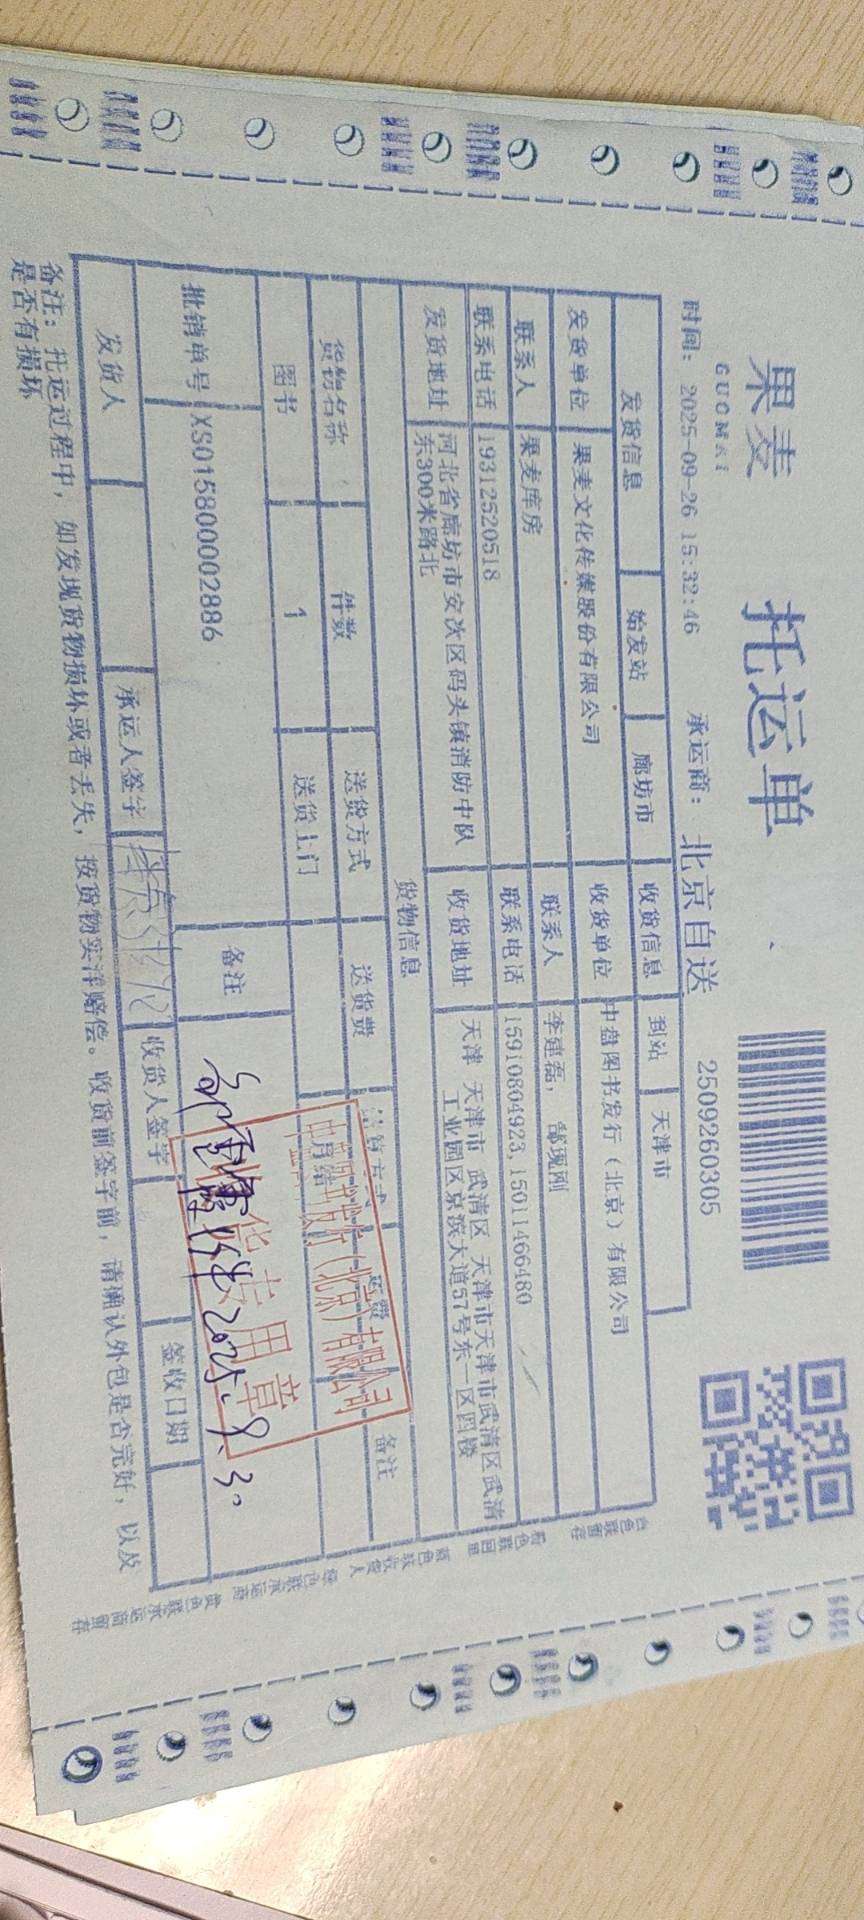 果麦
GUOMAI
托运单
时间：2025-09-26 15:32:46
承运商：北京自送
2509260305
发货信息 始发站 廊坊市 收货信息 到站 天津市
发货单位 果麦文化传媒股份有限公司 收货单位 中盘图书发行（北京）有限公司
联系人 果麦库房 联系人 李建磊，郝现刚
联系电话 19312520518 联系电话 15910804923,15011466480
发货地址 河北省廊坊市安次区码头镇消防中队
东300米路北
收货地址 天津 天津市 武清区 天津市天津市武清区武清
工业园区京滨大道57号东一区四楼
货物信息
货物名称 件数 送货方式 送货费 结算方式 运费 备注
图书 1 送货上门 月结
批销单号 XS015800002886 备注
（北京）有限公司
专用章
2025.9.30
发货人 承运人签字 收货人签字 签收日期
备注：托运过程中，如发现货物损坏或者丢失，按货物实洋赔偿。收货前签字前，请确认外包是否完好，以及
是否有损坏
白色联留存